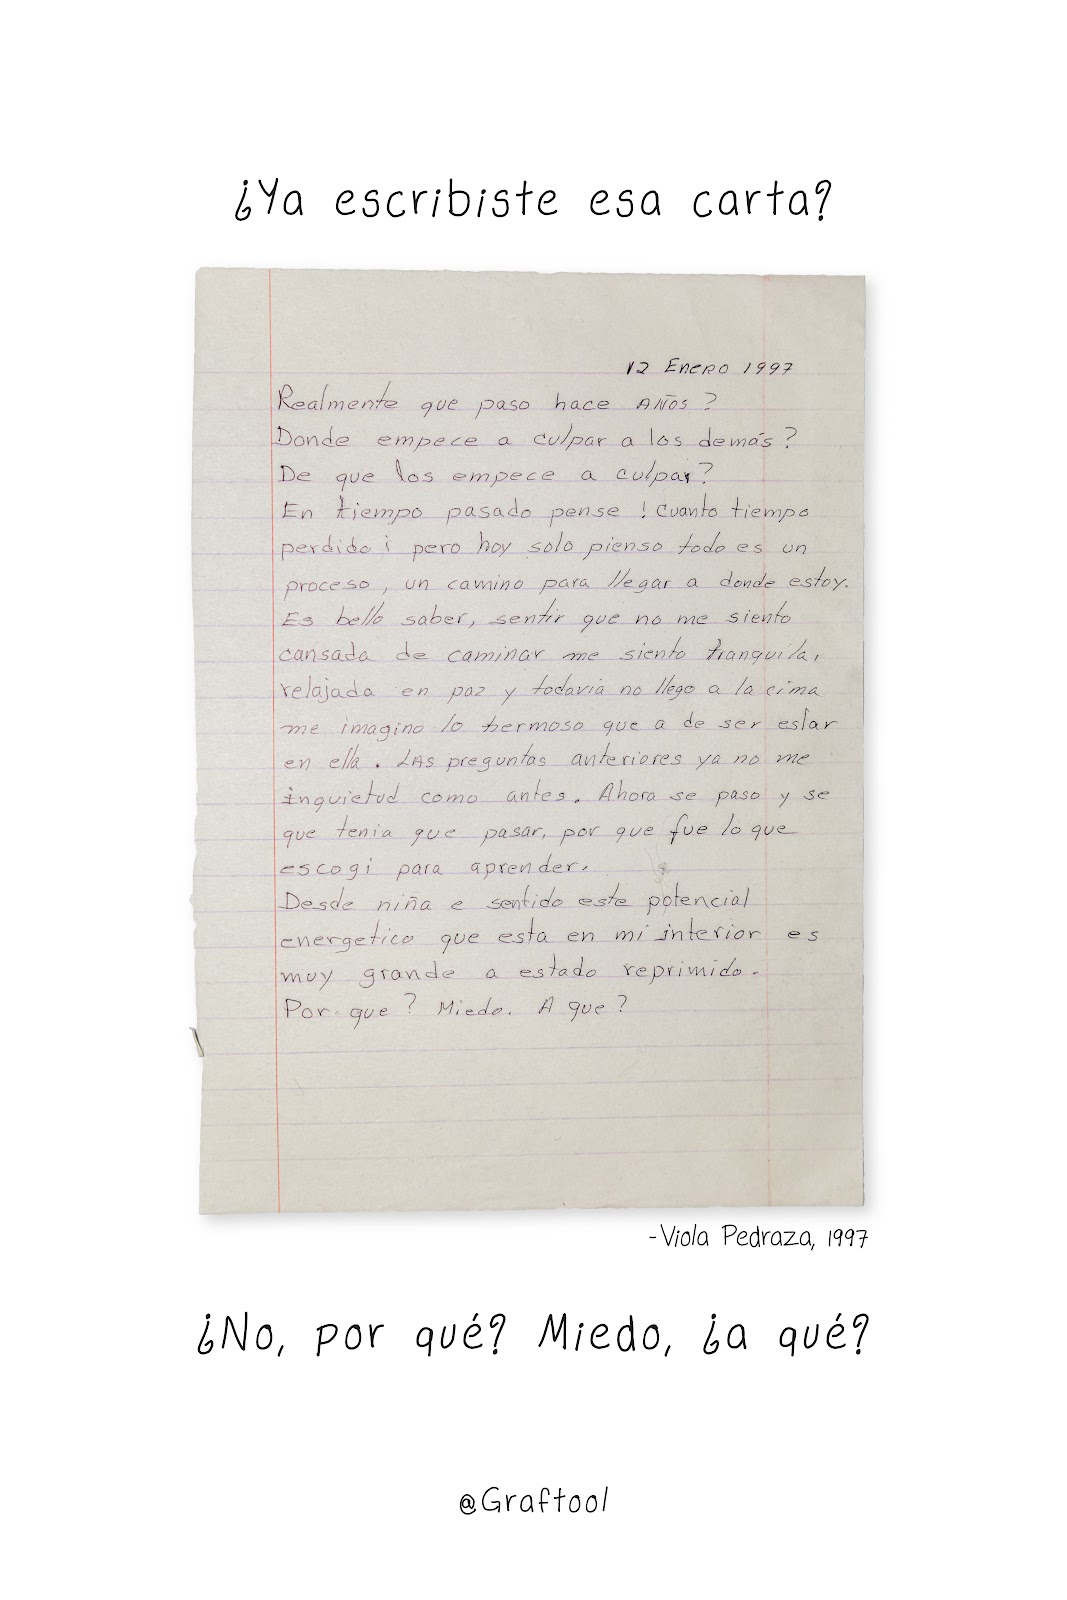 ¿Ya escribiste esa carta?
12 Enero 1997
Realmente que paso hace AÑOS ?
Donde empece a culpar a los demás ?
De que los empece a culpar ?
En tiempo pasado pense ! Cuanto tiempo
perdido ¡ pero hoy solo pienso todo es un
proceso, un camino para llegar a donde estoy.
Es bello saber, sentir que no me siento
cansada de caminar me siento tranquila,
relajada en paz y todavia no llego a la cima
me imagino lo hermoso que a de ser estar
en ella . LAS preguntas anteriores ya no me
inquietud como antes. Ahora se paso y se
que tenia que pasar, por que fue lo que
escogi para aprender.
Desde niña e sentido este potencial
energetico que esta en mi interior es
muy grande a estado reprimido.
Por que ? Miedo. A que ?
-Viola Pedraza, 1997
¿No, por qué? Miedo, ¿a qué?
@Graftool